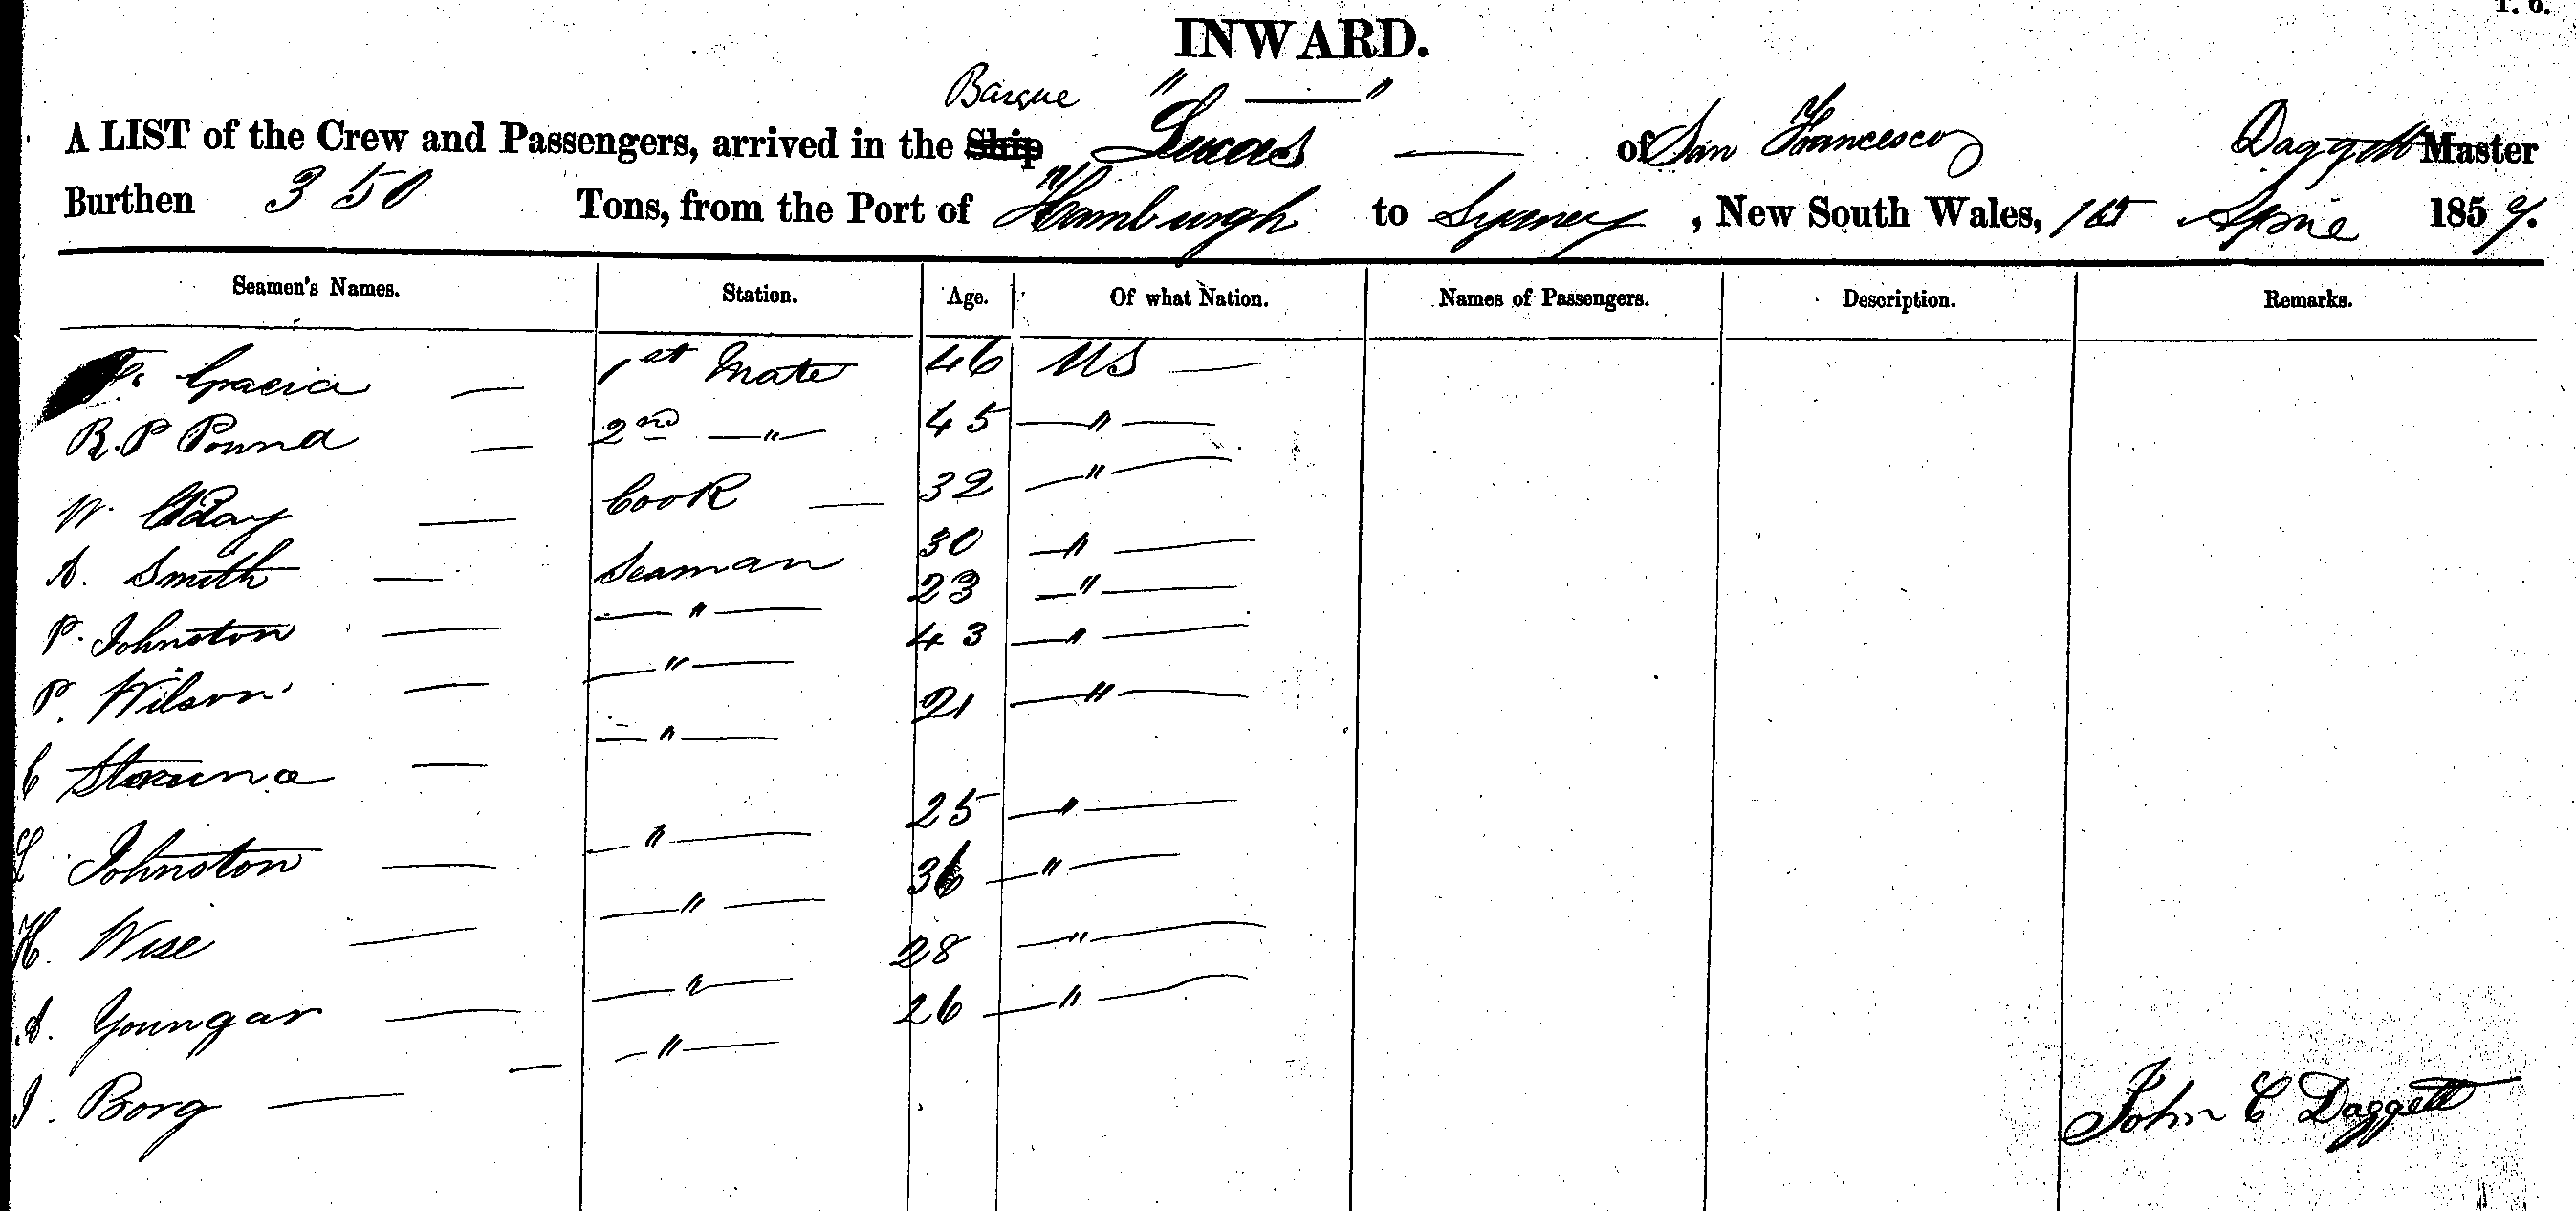 INWARD.
Barque " —— "
A LIST of the Crew and Passengers, arrived in the Ship Lucas — of San Francesco Daggett Master
Burthen 350 Tons, from the Port of Hamburgh to Sydney, New South Wales, 1st April 1859.
Seamen's Names. Station. Age. Of what Nation. Names of Passengers. Description. Remarks.
Gracia — 1st Mate 46 US —
R. P Pound — 2nd —"— 45 —"—
W. — Cook — 32 —"—
A. Smith — Seaman 30 —"—
P. Johnston — —"— 23 —"—
P. Wilson — —"— 43 —"—
C — —"— 21 —"—
Johnston — —"— 25 —"—
H. Wise — —"— 36 —"—
A. Youngar — —"— 28 —"—
J. Borg — —"— 26 —"—
John C Daggett